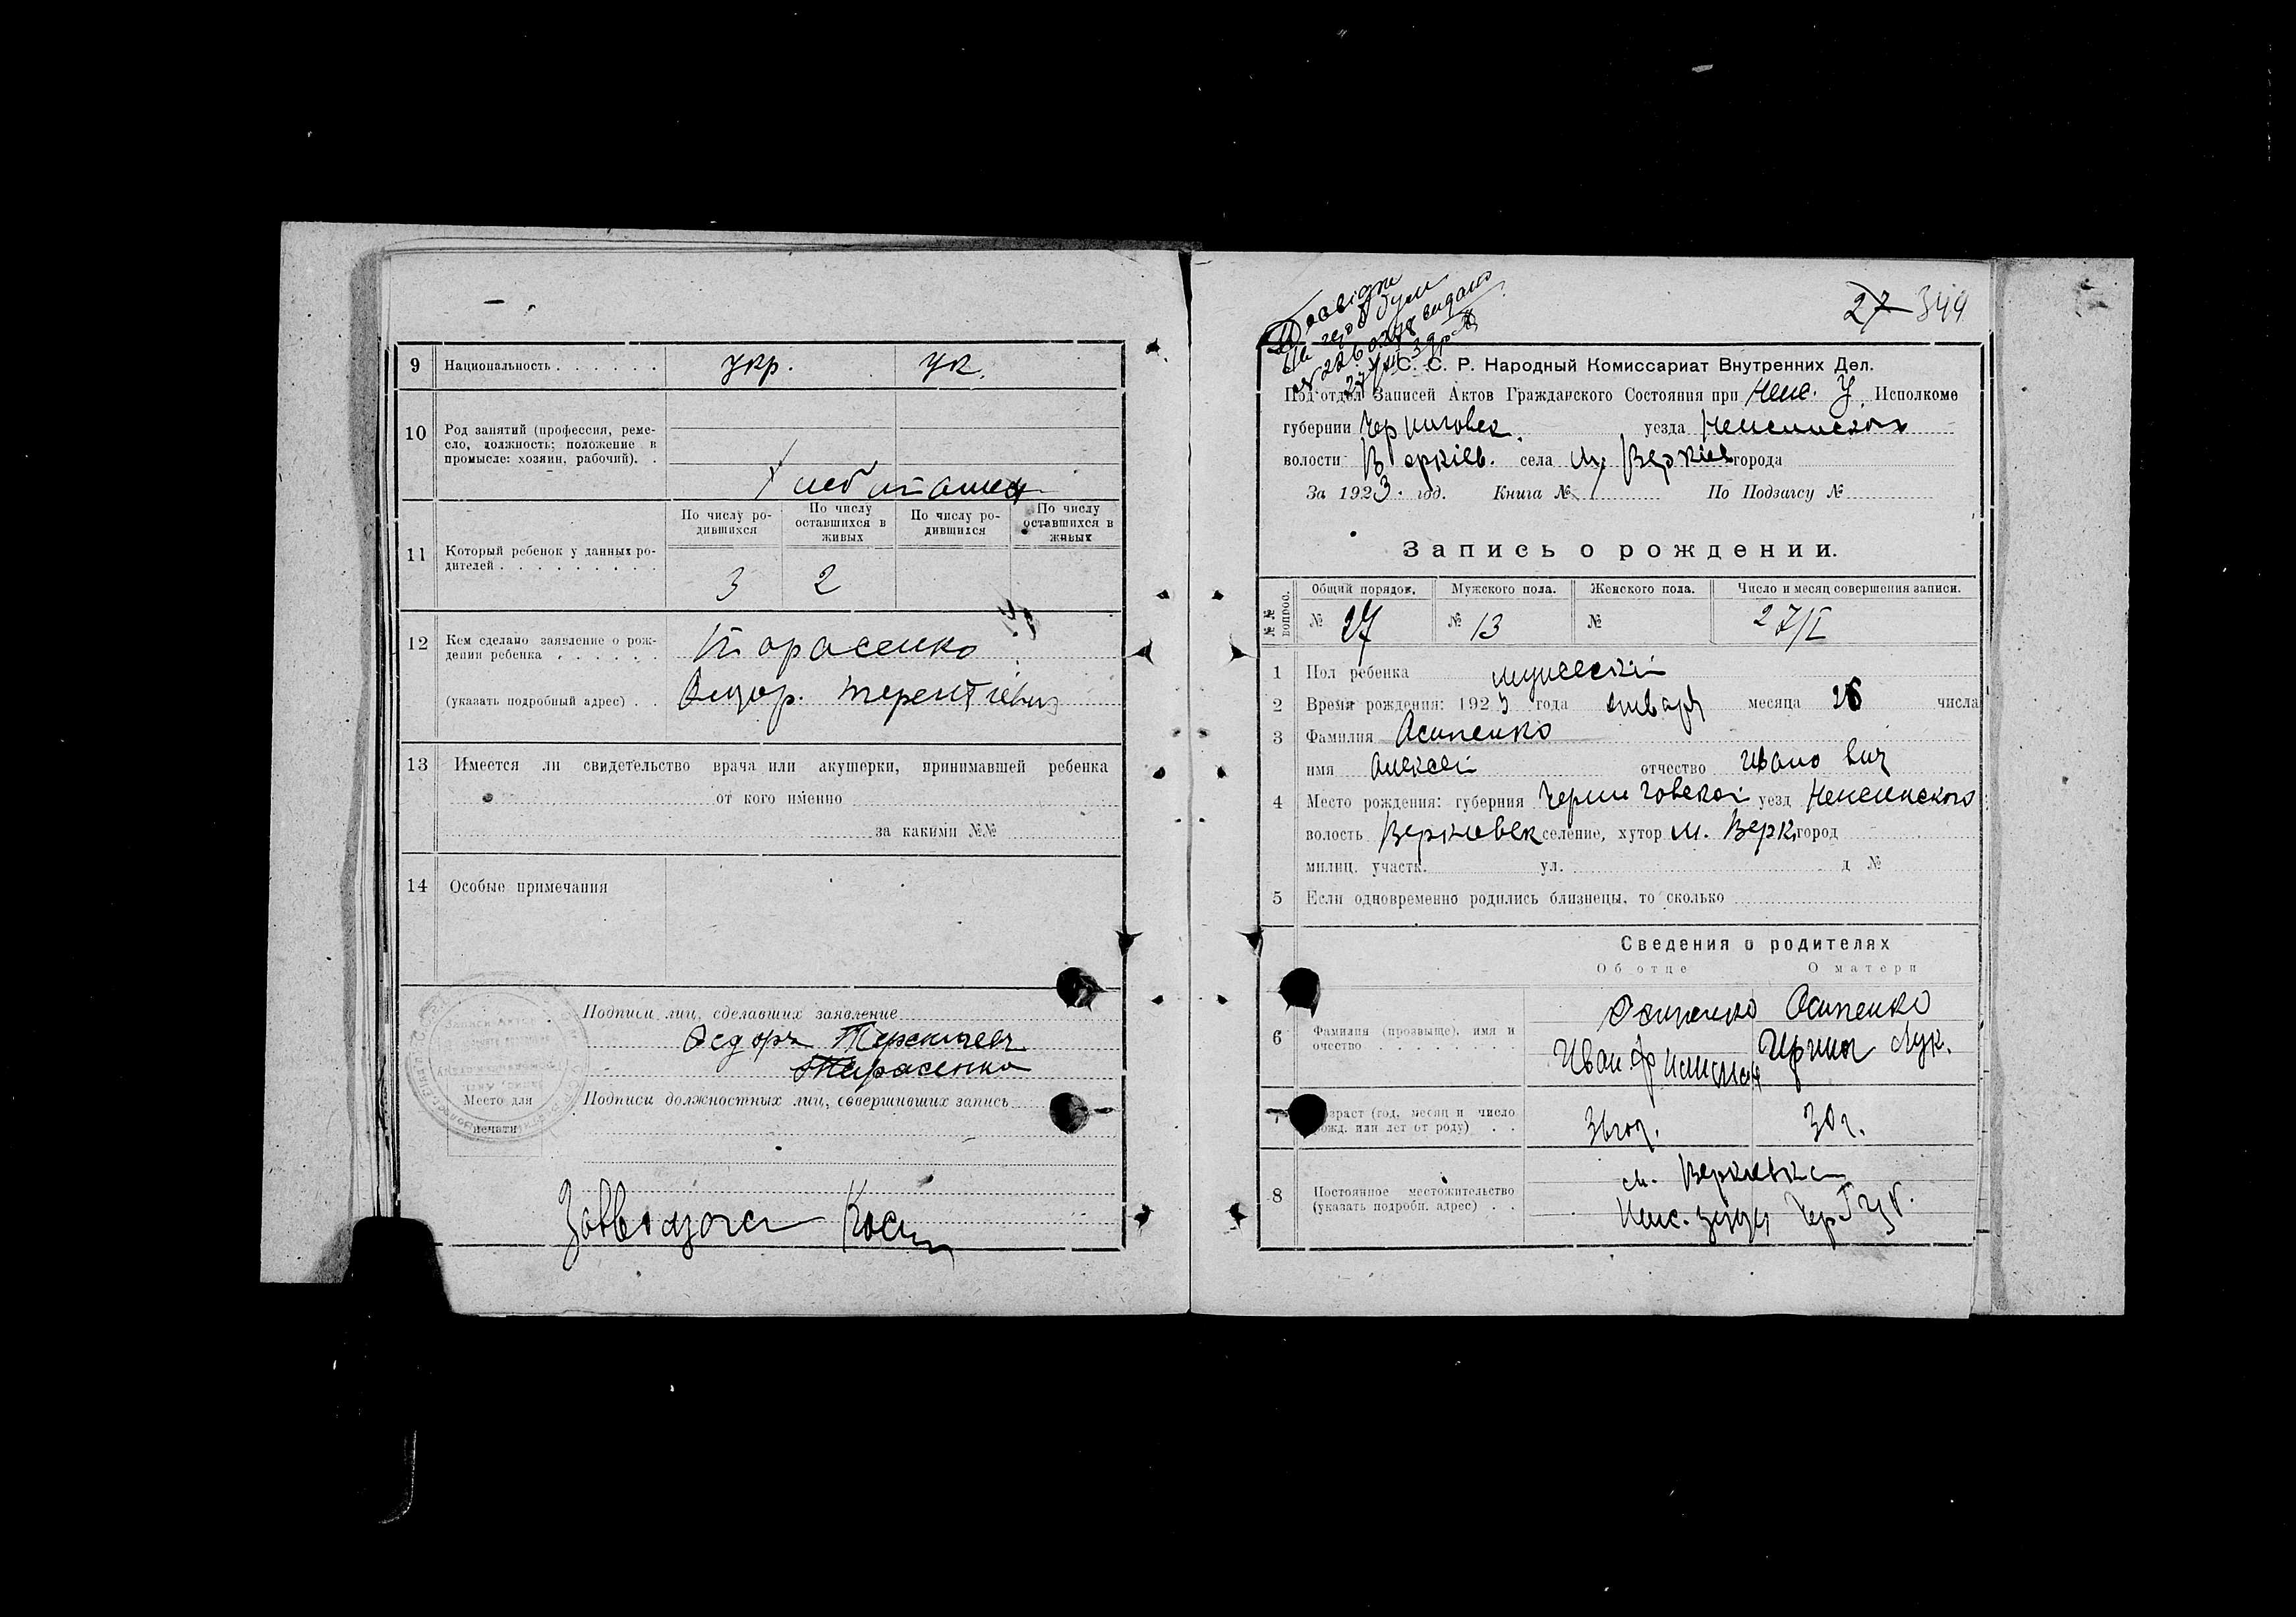 9 Национальность . . . . . . укр. ук.
10 Род занятий (профессия, реме-
сло, должность; положение в
промысле: хозяин, рабочий). .
11 Который ребенок у данных ро-
дителей . . . . . . . . .
По числу ро-
дившихся
По числу
оставшихся в
живых
По числу ро-
дившихся
По числу
оставшихся в
живых
3 2
12 Кем сделано заявление о рож-
дении ребенка . . . . . .
(указать подробный адрес) . .
Тарасенко
13 Имеется ли свидетельство врача или акушерки, принимавшей ребенка
от кого именно
за какими №№
14 Особые примечания
Подписи лиц, сделавших заявление
Федоръ
Тарасенко
Подписи должностных лиц, совершивших запись
Место для
печати
27 344
С. С. Р. Народный Комиссариат Внутренних Дел.
Под'отдел Записей Актов Гражданского Состояния при Неж. У. Исполкоме
губернии Черниговск. уезда
волости Веркіев. села м. Веркіев города
За 1923. год. Книга № По Подзагсу №
Запись о рождении.
№№ вопрос. Общий порядок. Мужского пола. Женского пола. Число и месяц совершения записи.
№ 27 № 13 № 27/I
1 Пол ребенка мужескі
2 Время рождения: 1923 года января месяца 26 числа
3 Фамилия Осипенко
имя Алексеі отчество Иванович
4 Место рождения: губерния Черниговскоі уезд Неженского
волость Веркиевск селение, хутор м. Верк. город
милиц. участк. ул. д №
5 Если одновременно родились близнецы, то сколько
Сведения о родителях
Об отце О матери
6 Фамилия (прозвыще), имя и
очество . . . . . . . . .
Осипенко Осипенко
Иван Ирина Лук.
7 Возраст (год, месяц и число
рожд. или лет от роду) . .
36 год. 30 г.
8 Постоянное местожительство
(указать подробн. адрес) . .
м. Веркиевка